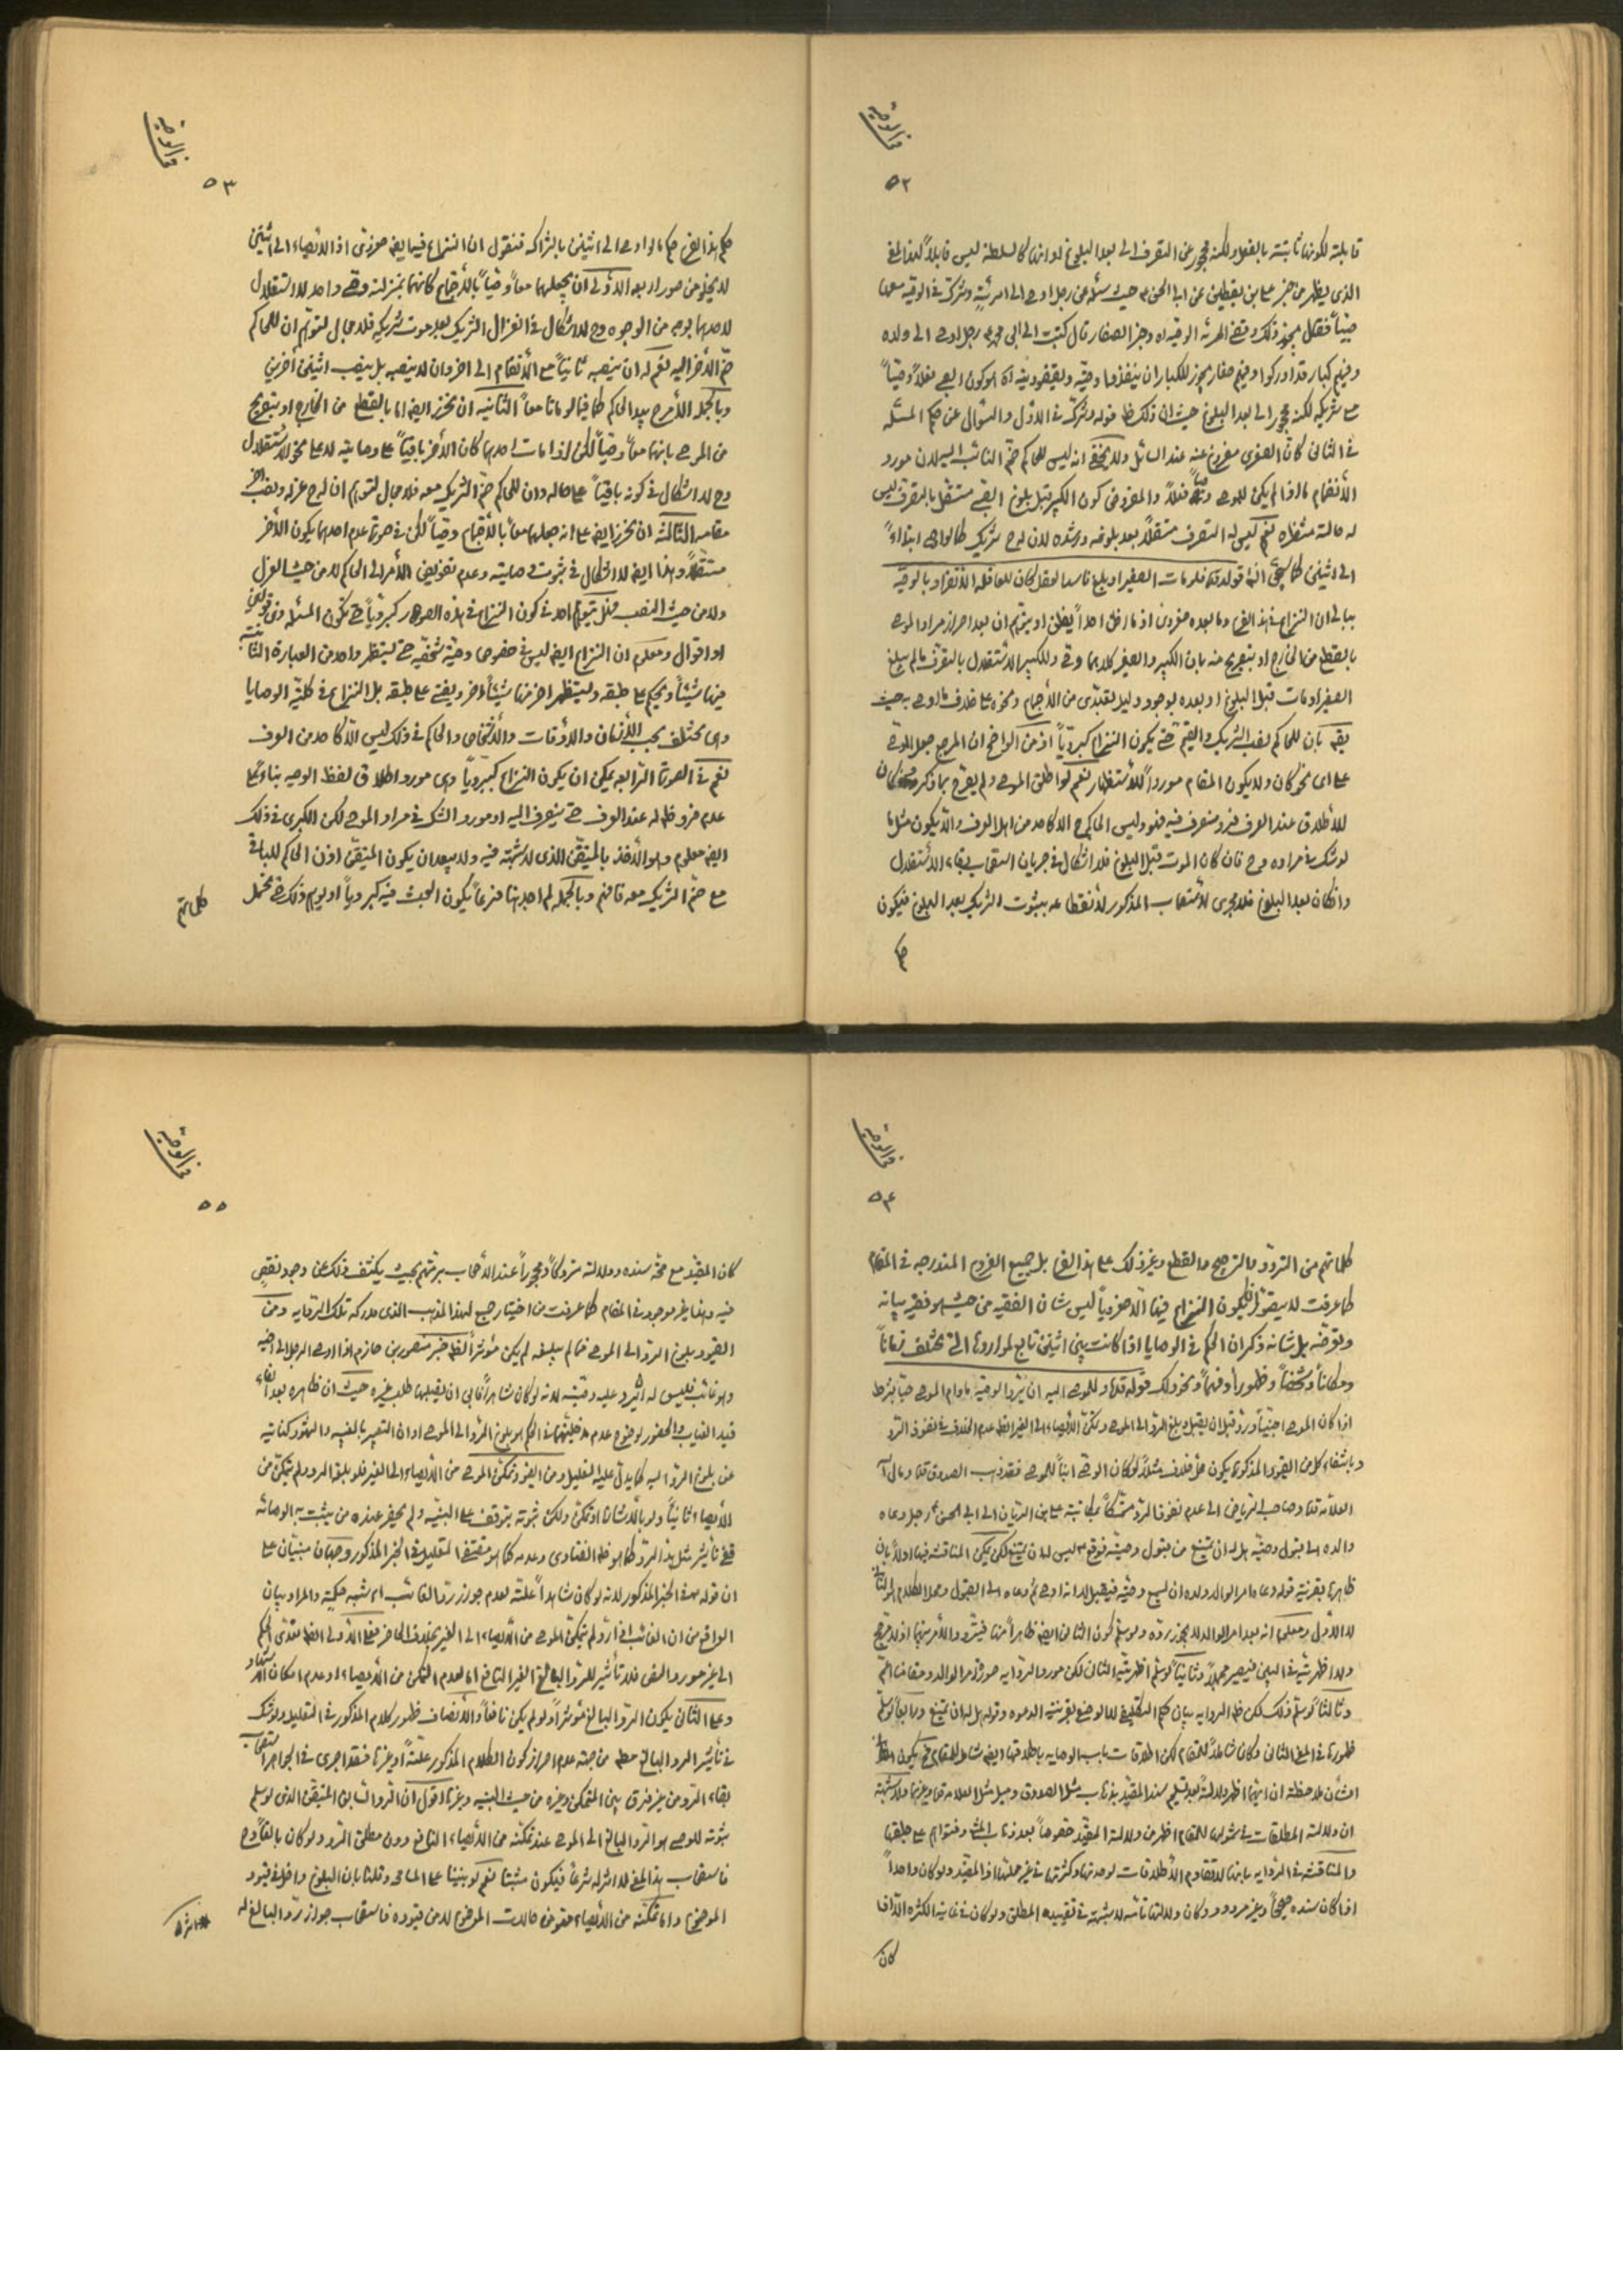 في الوصية
٥٢
قابلة لكونها ثابتة بالفعل ولكنه محجور عن التصرف الى بعد البلوغ لو انها كالسلطنة ليس قابلاً لهذا المعنى
الذي يظهر من خبر علي بن يقطين عن ابي الحسن ع حيث سئله عن رجل اوصى الى امرئة وشرك في الوصية معها
صبياً فقال يجوز ذلك وتمضي المرئة الوصية اه وخبر الصفار قال كتبت الى ابي محمد ع رجل اوصى الى ولده
وفيهم كبار قد ادركوا وفيهم صغار يجوز للكبار ان ينفذوا وصيته ويقضوا دينه اه هو كون الصبي فعلاً وصياً
مع شريكه لكنه محجور الى بعد البلوغ حيث ان ذلك ظ قوله وشرك في الاول والسؤال عن حكم المسئلة
في الثاني كان الصغرى مفروغ عنه عند السائل ولا يخفى انه ليس للحاكم ضم النائب اليه لان مورد
الأنضمام ما اذا لم يكن للموصي وصياً فعلاً والمفروض كون الكبير قبل بلوغ الصبي مستقل بالتصرف ليس
له حالة منتظرة نعم ليس له التصرف مستقلاً بعد بلوغه ورشده لان له ح شريك كما لو اوصى ابتداءً
الى اثنين كما سيجئ انشاء قوله قده فلو مات الصغير او بلغ فاسد العقل كان للعاقل الانفراد بالوصية
ببالي ان النزاع في هذا الفرع وما بعده صغروي اذ ما اظن احداً يظن او يتوهم ان بعد احراز مراد الموصي
بالقطع من الخارج او بتصريح منه بان الكبير والصغير كلاهما وصي وللكبير الأستقلال بالتصرف ما لم يبلغ
الصغير او مات قبل البلوغ او بعده لوجود دليل تعبدي من الأجماع ونحوه على خلاف ما اوصى به حيث
يقع بان للحاكم نصب الشريك والقيم حتى يكون النزاع كبروياً اذ من الواضح ان المرجع جعل الموصي
على اي نحو كان ولا يكون المقام مورداً للأستظهار نعم لو اطلق الموصي ولم يصرح بما ذكر وكان
للأطلاق عند العرف فرد منصرف فيه فهو وليس الحاكم ح الا كاحد من اهل العرف والا يكون مثل ما
لو شك في مراده وح فان كان الموت قبل البلوغ فلا اشكال في جريان استصحاب بقاء الأستقلال
واذا كان بعد البلوغ فلا مجرى للأستصحاب المذكور لأنقطاعه بثبوت الشريك بعد البلوغ فيكون
حكم
في الوصية
٥٣
حكم هذا الفرع حكم ما لو اوصى الى اثنين بالشراكة فنقول ان النزاع فيها ايضا صغروي اذ الأيصاء الى اثنين
لا يخلو من صور اربعة الأولى ان يجعلهما معاً وصياً بالأجتماع كانهما بمنزلة وصي واحد لا استقلال
لاحدهما بوجه من الوجوه وح لا اشكال في انعزال الشريك بعد موت شريكه فلا مجال لتوهم ان للحاكم
ضم الأخر اليه نعم له ان ينصبه ثانياً مع الأنضمام الى اخر وان لا ينصبه بل ينصب اثنين اخرين
وبالجملة الأمر ح بيد الحاكم كما فيما لو ماتا معاً الثانية ان نحرز ايضا اما بالقطع من الخارج او بتصريح
من الموصي بانهما معاً وصياً لكن اذا مات احدهما كان الأخر باقياً على وصايته لا على نحو الأستقلال
وح لا اشكال في كونه باقياً على حاله وان للحاكم ضم الشريك معه فلا مجال لتوهم ان له ح عزله ونصب اخر
مقامه الثالثة ان نحرز ايضا على انه جعلهما معاً بالأجتماع وصياً لكن في صورة عدم احدهما يكون الأخر
مستقلاً وهذا ايضا لا اشكال في ثبوت وصايته وعدم تفويض الأمر الى الحاكم لا من حيث العزل
ولا من حيث النصب فهل يتوهم احد في كون النزاع في هذه الصور كبروياً حتى تكون المسئلة ذي قولين
او اقوال ومعلوم ان النزاع ايضا ليس في خصوص وصية شخصية حتى يستظهر واحد من العبارة الثابتة
منها شيئاً ويحكم على طبقه ويستظهر اخر منها شيئاً اخر ويفتي على طبقه بل النزاع في كلية الوصايا
وهي تختلف بحسب الأزمان والأوقات والأشخاص والحاكم في ذلك ليس الا كاحد من العرف
نعم في الصورة الرابعة يمكن ان يكون النزاع كبروياً وهي مورد اطلاق لفظ الوصية بناءً على
عدم فرد ظ له عند العرف حتى ينصرف اليه او مورد الشك في مراد الموصي لكن الكبرى في ذلك
ايضا معلوم وهو الأخذ بالمتيقن الذي لا شبهة فيه ولا يبعد ان يكون المتيقن اذن الحاكم للباقي
مع ضم الشريك معه فافهم وبالجملة لم اجد هنا فرعاً يكون البحث فيه كبروياً او يوهم ذلك حتى نحمل
كلماتهم
في الوصية
٥٤
كلماتهم من التردد والترجيح والقطع وغير ذلك على هذا الفرع بل جميع الفروع المندرجة في المقام
كما عرفت لا يتصور فيكون النزاع فيها الا صغروياً ليس شأن الفقيه من حيث هو فقيه بيانه
وتعرضه بل شانه ذكر ان الحكم في الوصايا اذا كانت بين اثنين تابع لمواردها التي تختلف زماناً
ومكاناً وشخصاً وظهوراً وفهماً ونحو ذلك قوله قده وللموصى اليه ان يرد الوصية ما دام الموصي حياً بشرط
اذا كان الموصى اجنبياً ورد قبل ان يقبل وبلغ الرد الى الموصي وتمكن الأيصاء الى الغير الظ عدم الخلاف في نفوذ الرد
وبانتفاء كل من القيود المذكورة يكون محل خلاف مثلاً لو كان الوصي ابناً للموصي فقد ذهب الصدوق قده ومال اليه
العلامة قده وصاحب الرياض الى عدم نفوذ الرد متمسكاً بمكاتبة علي بن الريان الى ابي الحسن ع رجل دعاه
والده الى قبول وصيته هل له ان يمتنع من قبول وصيته فوقع ع ليس له ان يمتنع لكن يمكن المناقشة فيها اولاً بان
ظاهرها بقرينة قوله دعاه امر الوالد ولده ان يسمع وصيته فيقبل لا انه اوصى ثم دعاه الى القبول وحملا للكلام الى الثاني
لا الأول ومعلوم انه بعد امر الوالد لا يجوز رده ولو سلم كون الثاني ايضا ظاهراً منها فيتردد الأمر بينهما اذ لا مرجح
ولا اظهرية في البين فيصير مجملاً وثانياً لو سلم اظهرية الثاني لكن مورد الرواية صورة امر الوالد ومقامنا اعم
وثالثاً لو سلم ذلك لكن ظ الرواية بيان حكم التكليفي لا الوضعي بقرينة الدعوة وقوله هل له ان يمتنع ورابعاً لو سلم
ظهورها في المعنى الثاني وكان شاملاً للمقام لكن اطلاقات باب الوصاية باطلاقها ايضا شامل للمقام فح يكون
الشأن ملاحظة ان ايهما اظهر دلالة بعد تسليم سند المقيد بذهاب مثل الصدوق وميل مثل العلامة قده وغيرهما ولا شبهة
ان دلالة المطلقات في شمولها للمقام اظهر من دلالة المقيد خصوصاً بعد ذهاب المشهور وفتواهم على طبقها
والمناقشة في الرواية بانها لا تقاوم الأطلاقات لوحدتها وكثرتها في غير محلها اذ المقيد ولو كان واحداً
اذا كان سنده صحيحاً وغير مردود وكان دلالتها تامة لا شبهة في تقييده المطلق ولو كان في غاية الكثرة الا اذا
كان
في الوصية
٥٥
كان المقيد مع صحة سنده ودلالته متروكاً ومهجوراً عند الأصحاب برمتهم بحيث يكشف ذلك عن وجود نقص
فيه وهذا غير موجود في المقام كما عرفت من اختيار جمع لهذا المذهب الذي مدركه تلك الرواية ومن
القيود بلوغ الرد الى الموصي فما لم يبلغه لم يكن مؤثراً لظ خبر منصور بن حازم اذا اوصى الرجل الى اخيه
وهو غائب فليس له ان يرد عليه وصيته لانه لو كان شاهداً فابى ان يقبلها طلب غيره حيث ان ظاهره بعد الغاء
قيد الغياب والحضور لوضوح عدم مدخليتهما في الحكم هو بلوغ الرد الى الموصي او ان التعبير بالغيبة والشهود كناية
عن بلوغ الرد اليه كما يدل عليه التعليل ومن القيود تمكن الموصي من الأيصاء الى الغير فلو بلغ الرد ولم يتمكن من
الأيصاء ثانياً ولو بالأشارة او تمكن ولكن ثبوته يتوقف على البينة ولم يحضر عنده من يثبت به الوصاية
ففي تأثير مثل هذا الرد كما هو ظ الفتاوى وعدمه كما هو مقتضى التعليل في الخبر المذكور وجهان مبنيان على
ان قوله ع في الخبر المذكور لانه لو كان شاهداً علة لعدم جواز رد الغائب او شبه حكمة والمراد بيان
الواقع من ان الغائب اذا رد لم يتمكن الموصي من الأيصاء الى الغير بخلاف الحاضر فعلى الأول الظ تعدى الحكم
الى غير مورد النص فلا تأثير للرد البالغ الغير النافع اما لعدم التمكن من الأيصاء او عدم امكان الأشهاد
وعلى الثاني يكون الرد البالغ مؤثراً ولو لم يكن نافعاً والأنصاف ظهور كلام المذكور في التعليل ولو شك
في تأثير الرد البالغ مط من جهة عدم احراز كون الكلام المذكور علةً او غيرها فقد اجرى في الجواهر استصحاب
بقاء الرد من غير فرق بين المتمكن وغيره من حيث البينة وغيرها اقول ان الرد السابق المتيقن الذي لو سلم
ثبوته للوصي هو الرد البالغ الى الموصي عند تمكنه من الأيصاء النافع دون مطلق الرد ولو كان بالغاً وح
فاستصحاب هذا المعنى لا اثر له شرعاً فيكون مثبتا نعم لو بنينا على المسامحة وقلنا بان البلوغ داخل في قيود
الموضوع واما تمكنه من الأيصاء فهو من حالات الموضوع لا من قيوده فاستصحاب جواز رد البالغ له
اثره